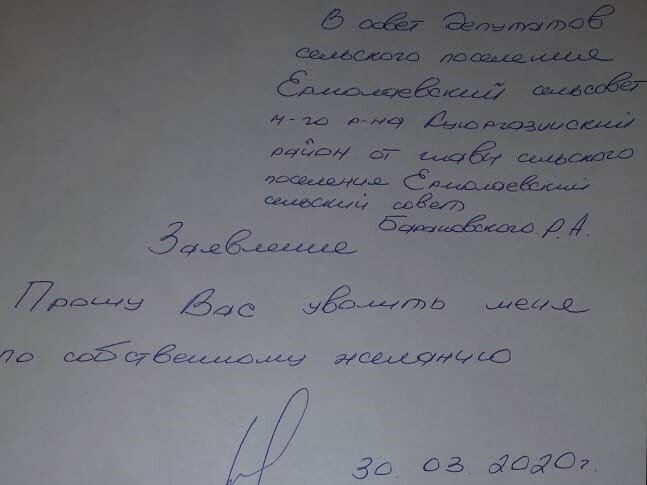 В совет депутатов
сельского поселения
Ермолаевский сельсовет
м-го р-на Куюргазинский
район от главы сельского
поселения Ермолаевский
сельский совет
Барановского. Р.А.
Заявление
Прошу Вас уволить меня
по собственному желанию
30. 03. 2020г.